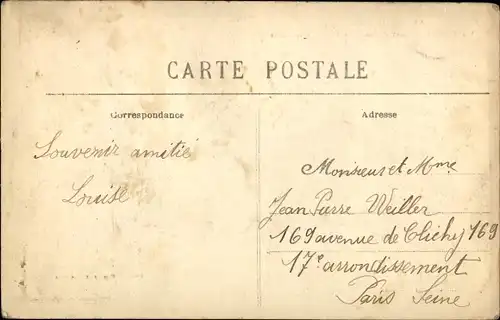 CARTE POSTALE
Correspondance
Adresse
Souvenir amitié
Louise
Monsieur et Mme
Jean Pierre Weiller
169 avenue de Clichy 169
17e arrondissement
Paris Seine